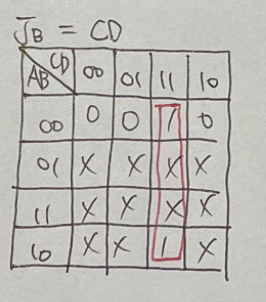 J_B = CD
AB CD 00 01 11 10
00 0 0 1 0
01 X X X X
11 X X X X
10 X X 1 X